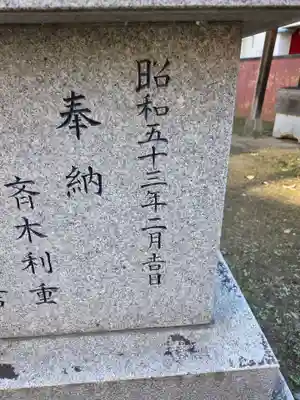 昭和五十三年二月吉日
奉納
斉木利重